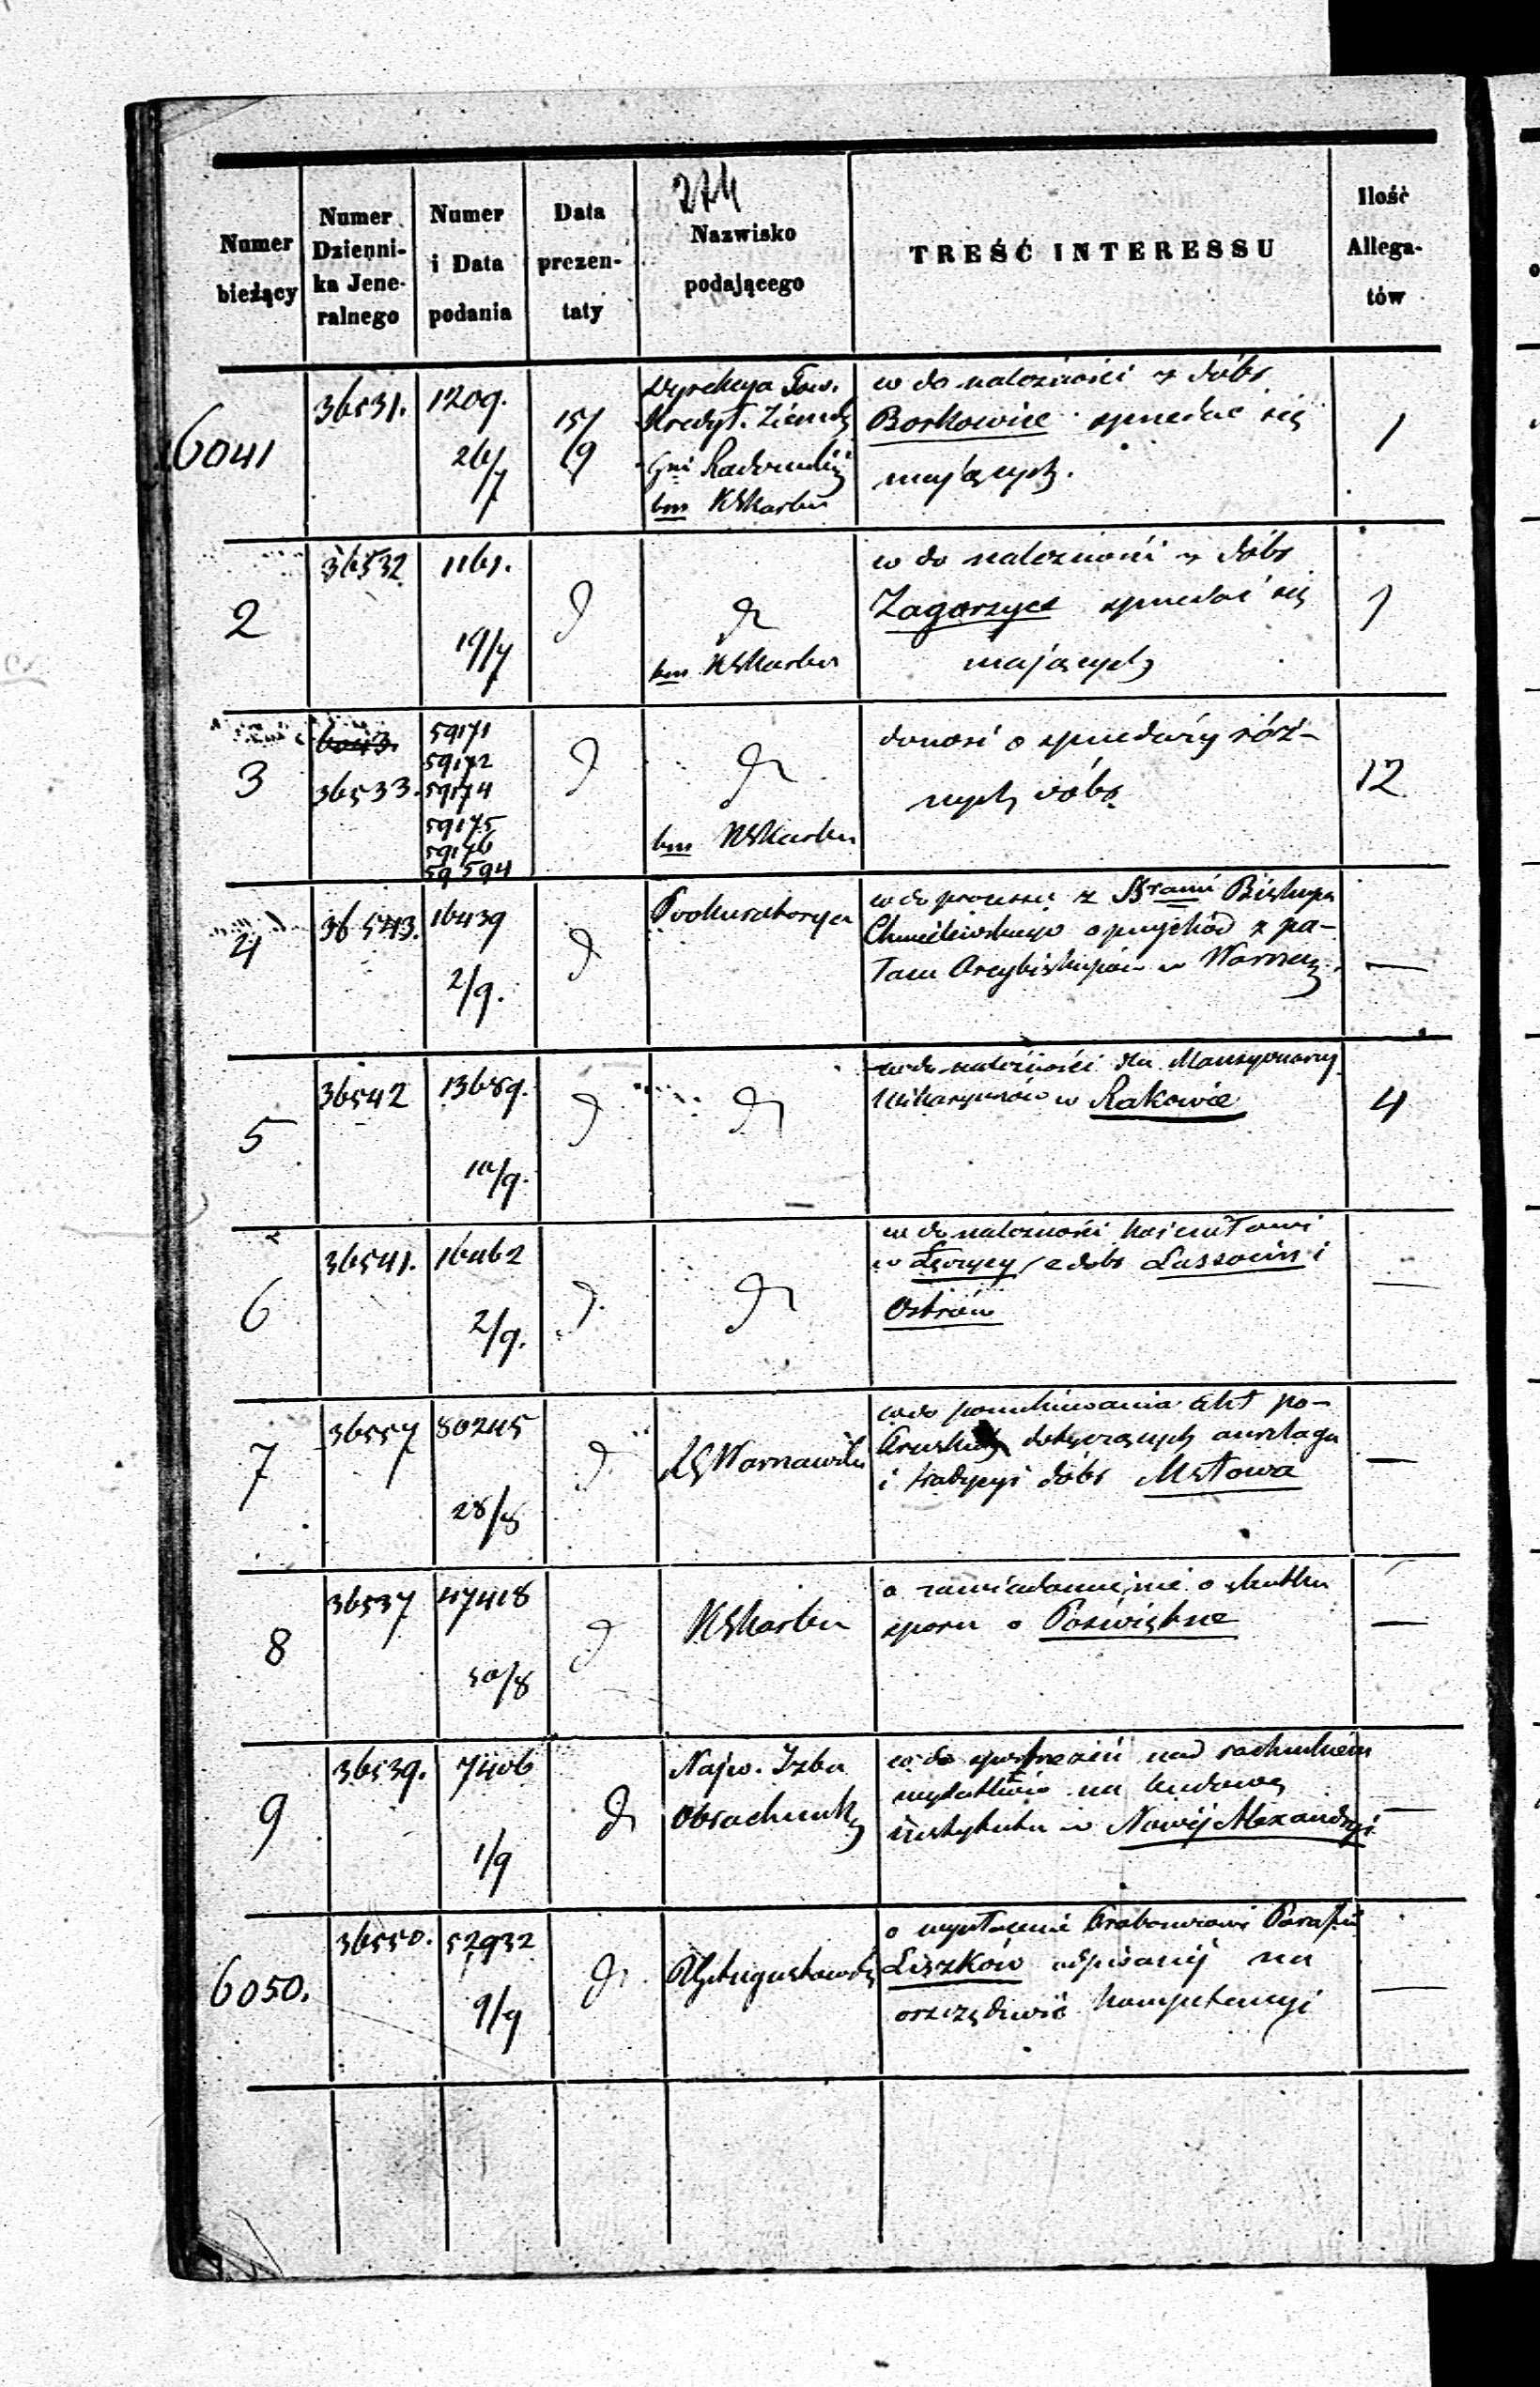 274
Numer bieżący
Numer Dzienni-ka Jene-ralnego
Numer i Data podania
Data prezen-taty
Nazwisko podającego
TREŚĆ INTERESSU
Ilość Allega-tów
6041
36531.
1209.
26/7
15/9
Dyrekcya Tow.
Kredyt. Ziemsk
Gni Radomskiéj
bm KSkarbu
w do należności z dóbr
Borkowice sprzedać się
mających.
1
2
36532
1161.
19/7
d
dt
bm KSkarbu
w do należności z dóbr
Zagorzyce sprzedać się
mających
1
3
6043.
36533.
59171
59172
59174
59175
59176
59594
d
dt
bm KSkarbu
donosi o sprzedaży róż-
nych dóbr
12
4
36543.
16439
2/9.
d
Prokuratorya
w do processu z SSrami Biskupa
Choromańskiego o przychód z pa-
łacu Arcybiskupów w Warsz.
—
5
36542
13689.
10/9.
d
dt
w do należności dla Mansyonarzy
Wikaryuszów w Rakowie
4
6
36541.
16462
2/9.
d.
dt
w do należności kościołowi
w Łęczycy z dóbr Lassocin i
Ostrów
—
7
36557
80245
28/8
d
RGWarszawski
w do poszukiwania akt po-
Pruskich dotyczących anszlagu
i tradycyi dóbr Mełowa
—
8
36537
47418
30/8
d
KSkarbu
o zawiadomienie o skutku
sporu o Poświętne
—
9
36539.
7406
1/9
dt
Najw. Izba
Obrachunk
w do spostrzeżeń nad rachunkiem
wydatków na budowę
instytutu w Nowéj Alexandryi
—
6050.
36550.
52932
9/9
dt
RGAugustowski
o wypłacenie Proboszczowi Parafii
Liszków odpisanéj na
oszczędność kompetencyi
—